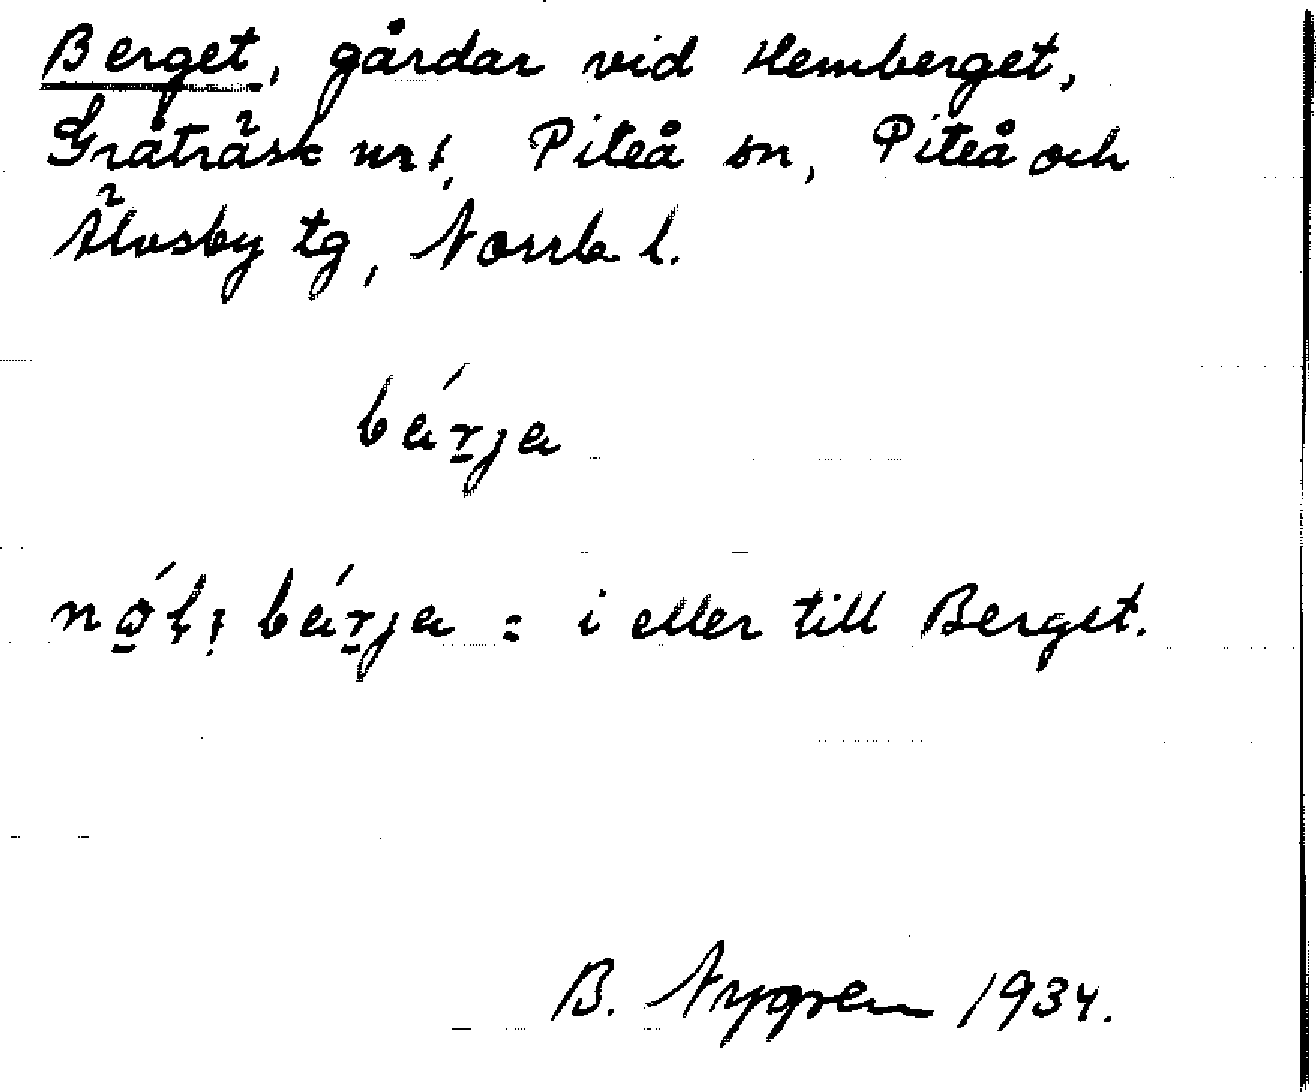 Berget, gårdar vid Hemberget,
Gråträsk nr 1, Piteå sn, Piteå och
Älvsby tg, Norrb l.
bárja
bárja = i eller till Berget.
B. Nygren 1934.